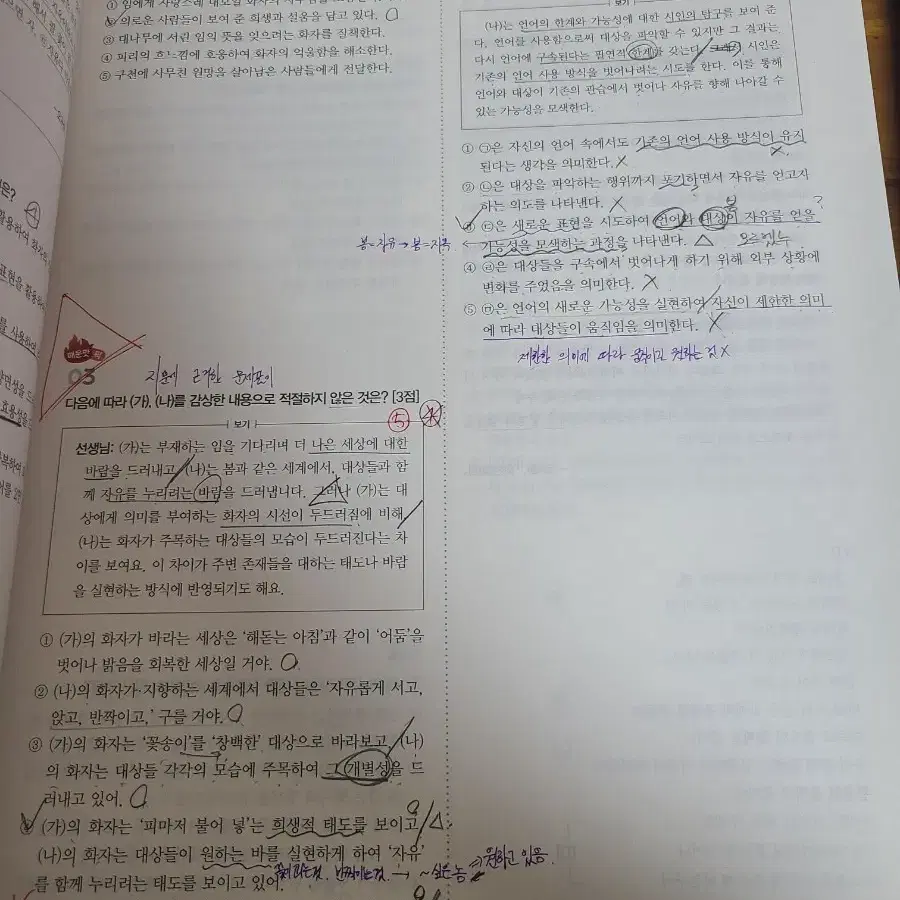 ② 의로운 사람들이 보여 준 희생과 설움을 담고 있다. ○
③ 대나무에 서린 임의 뜻을 잊으려는 화자를 질책한다.
④ 피리의 흐느낌에 호응하여 화자의 억울함을 해소한다.
⑤ 구천에 사무친 원망을 살아남은 사람들에게 전달한다.
매운맛
03
지문에 근거한 문제풀이
다음에 따라 (가), (나)를 감상한 내용으로 적절하지 않은 것은? [3점]
⑤ ④
보기
선생님: (가)는 부재하는 임을 기다리며 더 나은 세상에 대한
바람을 드러내고, (나)는 봄과 같은 세계에서, 대상들과 함
께 자유를 누리려는 바람을 드러냅니다. 그러나 (가)는 대
상에게 의미를 부여하는 화자의 시선이 두드러짐에 비해,
(나)는 화자가 주목하는 대상들의 모습이 두드러진다는 차
이를 보여요. 이 차이가 주변 존재들을 대하는 태도나 바람
을 실현하는 방식에 반영되기도 해요.
① (가)의 화자가 바라는 세상은 '해돋는 아침'과 같이 '어둠'을
벗어나 밝음을 회복한 세상일 거야. ○
② (나)의 화자가 지향하는 세계에서 대상들은 '자유롭게 서고,
앉고, 반짝이고,' 구를 거야. ○
③ (가)의 화자는 '꽃송이'를 '창백한' 대상으로 바라보고, (나)
의 화자는 대상들 각각의 모습에 주목하여 그 개별성을 드
러내고 있어. ○
④ (가)의 화자는 '피마저 불어 넣'는 희생적 태도를 보이고, △
(나)의 화자는 대상들이 원하는 바를 실현하게 하여 '자유'
를 함께 누리려는 태도를 보이고 있어.
반짝이는것 → ~싶은 놈 원하고 있음.
보기
(나)는 언어의 한계와 가능성에 대한 시인의 탐구를 보여 준
다. 언어를 사용함으로써 대상을 파악할 수 있지만 그 결과는
다시 언어에 구속된다는 필연적 한계를 갖는다. 그래서 시인은
기존의 언어 사용 방식을 벗어나려는 시도를 한다. 이를 통해
언어와 대상이 기존의 관습에서 벗어나 자유를 향해 나아갈 수
있는 가능성을 모색한다.
① ㉠은 자신의 언어 속에서도 기존의 언어 사용 방식이 유지
된다는 생각을 의미한다. X
② ㉡은 대상을 파악하는 행위까지 포기하면서 자유를 얻고자
하는 의도를 나타낸다. X
③ ㉢은 새로운 표현을 시도하여 언어와 대상이 자유를 얻을
봄=자유 → 봄=자유 ← 가능성을 모색하는 과정을 나타낸다. △
④ ㉣은 대상들을 구속에서 벗어나게 하기 위해 외부 상황에
변화를 주었음을 의미한다. X
⑤ ㉤은 언어의 새로운 가능성을 실현하여 자신이 제한한 의미
에 따라 대상들이 움직임을 의미한다. X
제한한 의미에 따라 움직이고 원하는 것 X